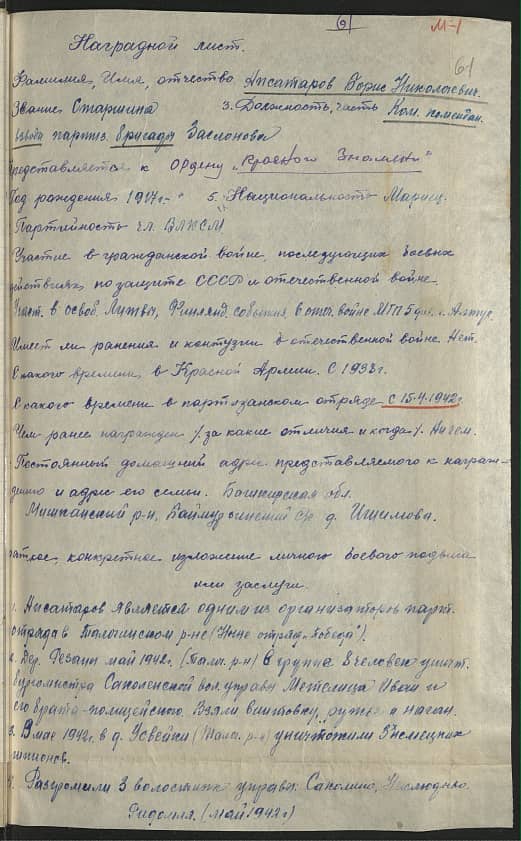 61
М-1
61
Наградной лист.
Фамилия, Имя, отчество Ансатаров Борис Николаевич.
Звание Старшина 3. Должность, часть Ком. комендан.
взвода партиз. бригады Заслонова
Представляется к ордену "Красного Знамени"
Год рождения 1917 г. 5. Национальность Мариец.
Партийность чл. ВЛКСМ
Участие в гражданской войне, последующих боевых
действиях по защите СССР и отечественной войне.
Участ. в освоб. Литвы, Финлянд. события, в отеч. войне
Имеет ли ранения и контузии в отечественной войне. Нет.
С какого времени в Красной Армии. С 1938 г.
С какого времени в партизанском отряде с 15.4.1942 г.
Чем ранее награжден /за какие отличия и когда/. Ничем.
Постоянный домашний адрес представляемого к награж-
дению и адрес его семьи. Башкирская обл.
Мишкинский р-н, д. Ишимова.
конкретное изложение личного боевого подвига
или заслуги.
1. Ансатаров является одним из организаторов парт.
отряда в Толочинском р-не (Ныне отряд "Победа").
2. Дер. май 1942 г. (Толоч. р-н) В группе 8 человек уничт.
бургомистра вол. управы Метелица Иван и
его брата-полицейского. Взяли винтовку, ружье и наган.
3. В мае 1942 г. в д. Усвейки (Толоч. р-н) уничтожили 5 немецких
шпионов.
4. Разгромили 3 волостных управы:
(май 1942 г)